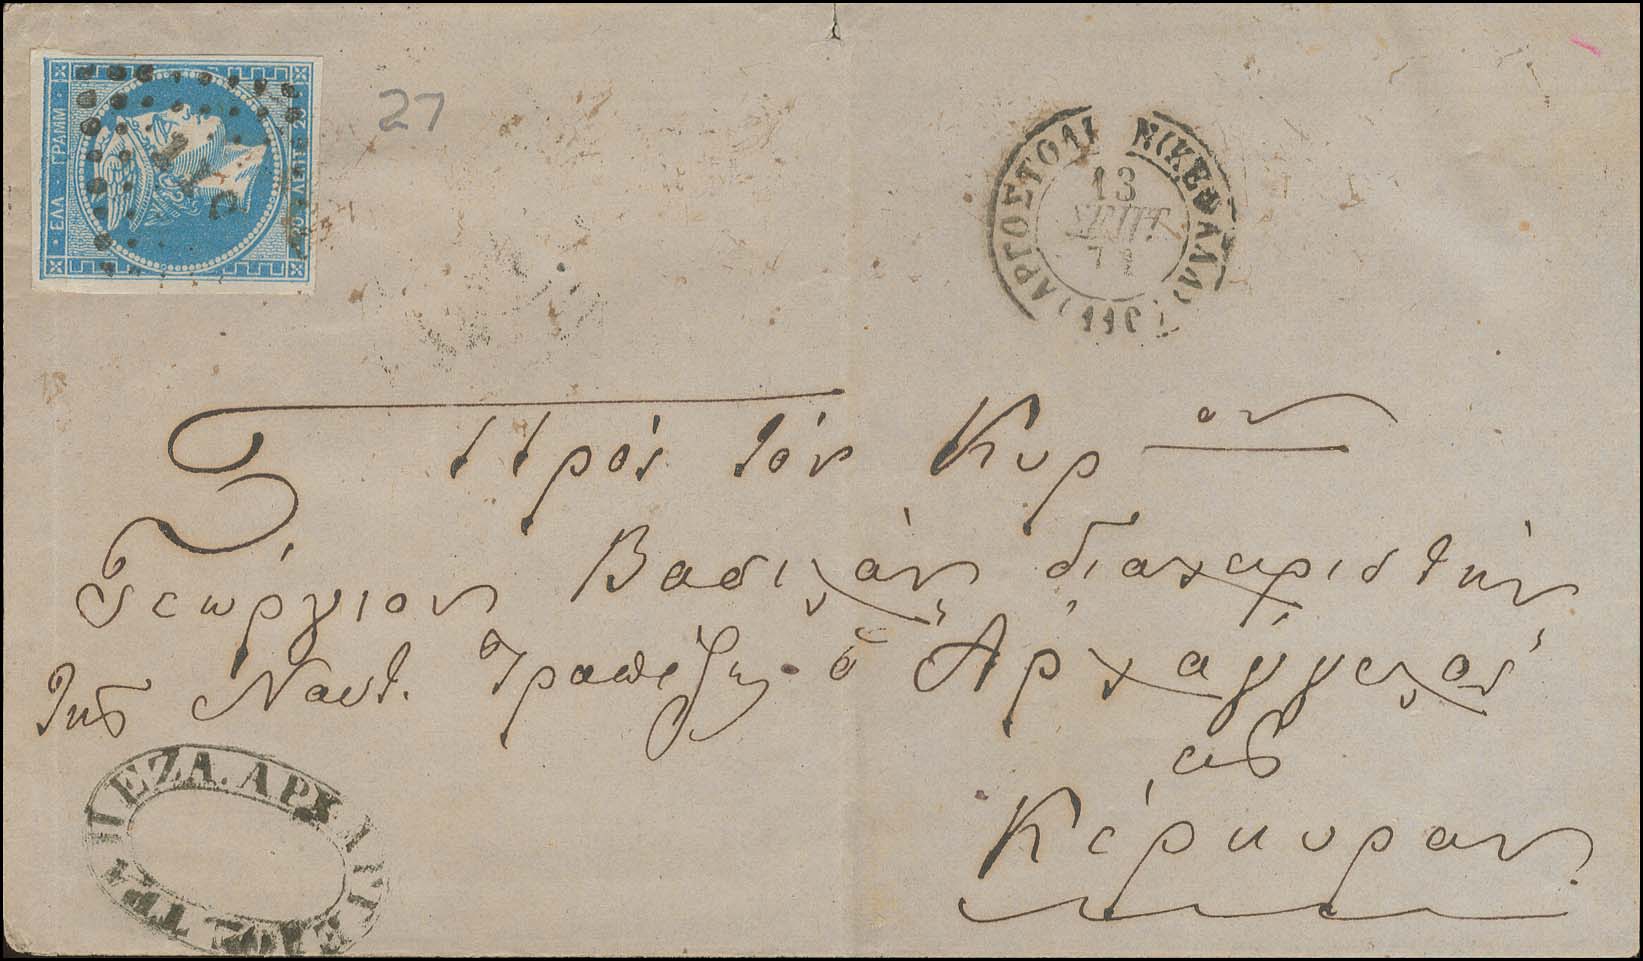 ΕΛΛ · ΓΡΑΜΜ
20 ΛΕΠΤ 20
27
ΑΡΓΟΣΤΟΛΙ
(ΚΕΦΑΛΛ)
13
ΣΕΠΤ.
71
(110)
Πρὸς τὸν Κυρ ον
Γεώργιον Βασιλᾶν διαχειριστὴν
τῆς Ναυτ. Τραπέζης ὁ Ἀρχάγγελος
εἰς
Κέρκυραν
ΤΡΑΠΕΖΑ. ΑΡΧΑΓΓΕΛΟΣ.